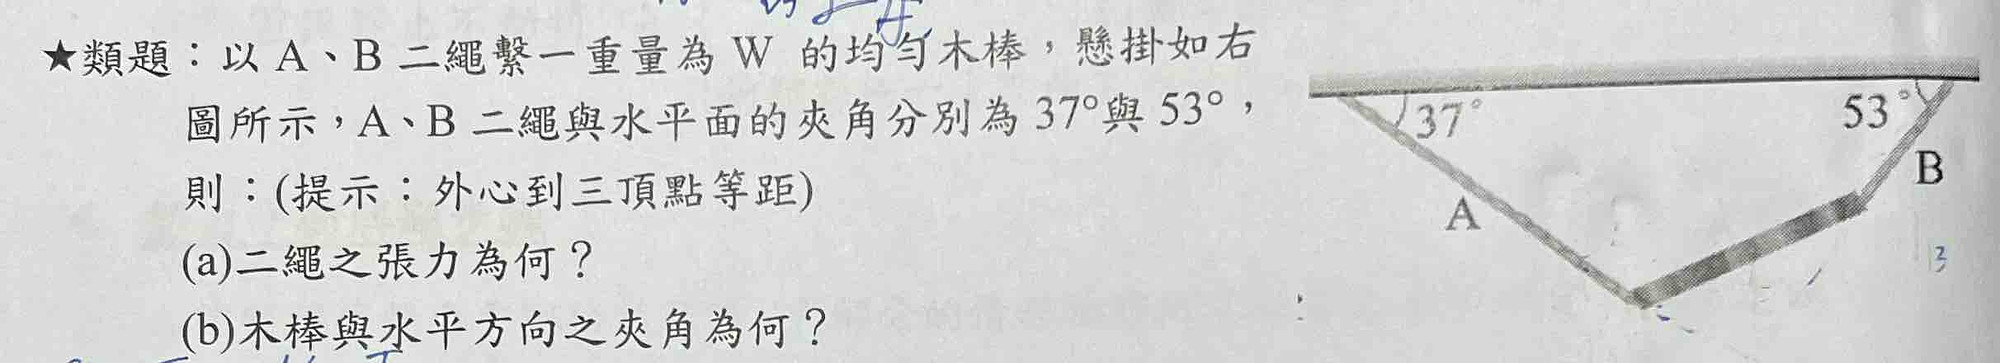 ★類題：以 A、B 二繩繫一重量為 W 的均勻木棒，懸掛如右
圖所示，A、B 二繩與水平面的夾角分別為 37°與 53°，
則：(提示：外心到三頂點等距)
(a)二繩之張力為何？
(b)木棒與水平方向之夾角為何？
37°
53°
A
B